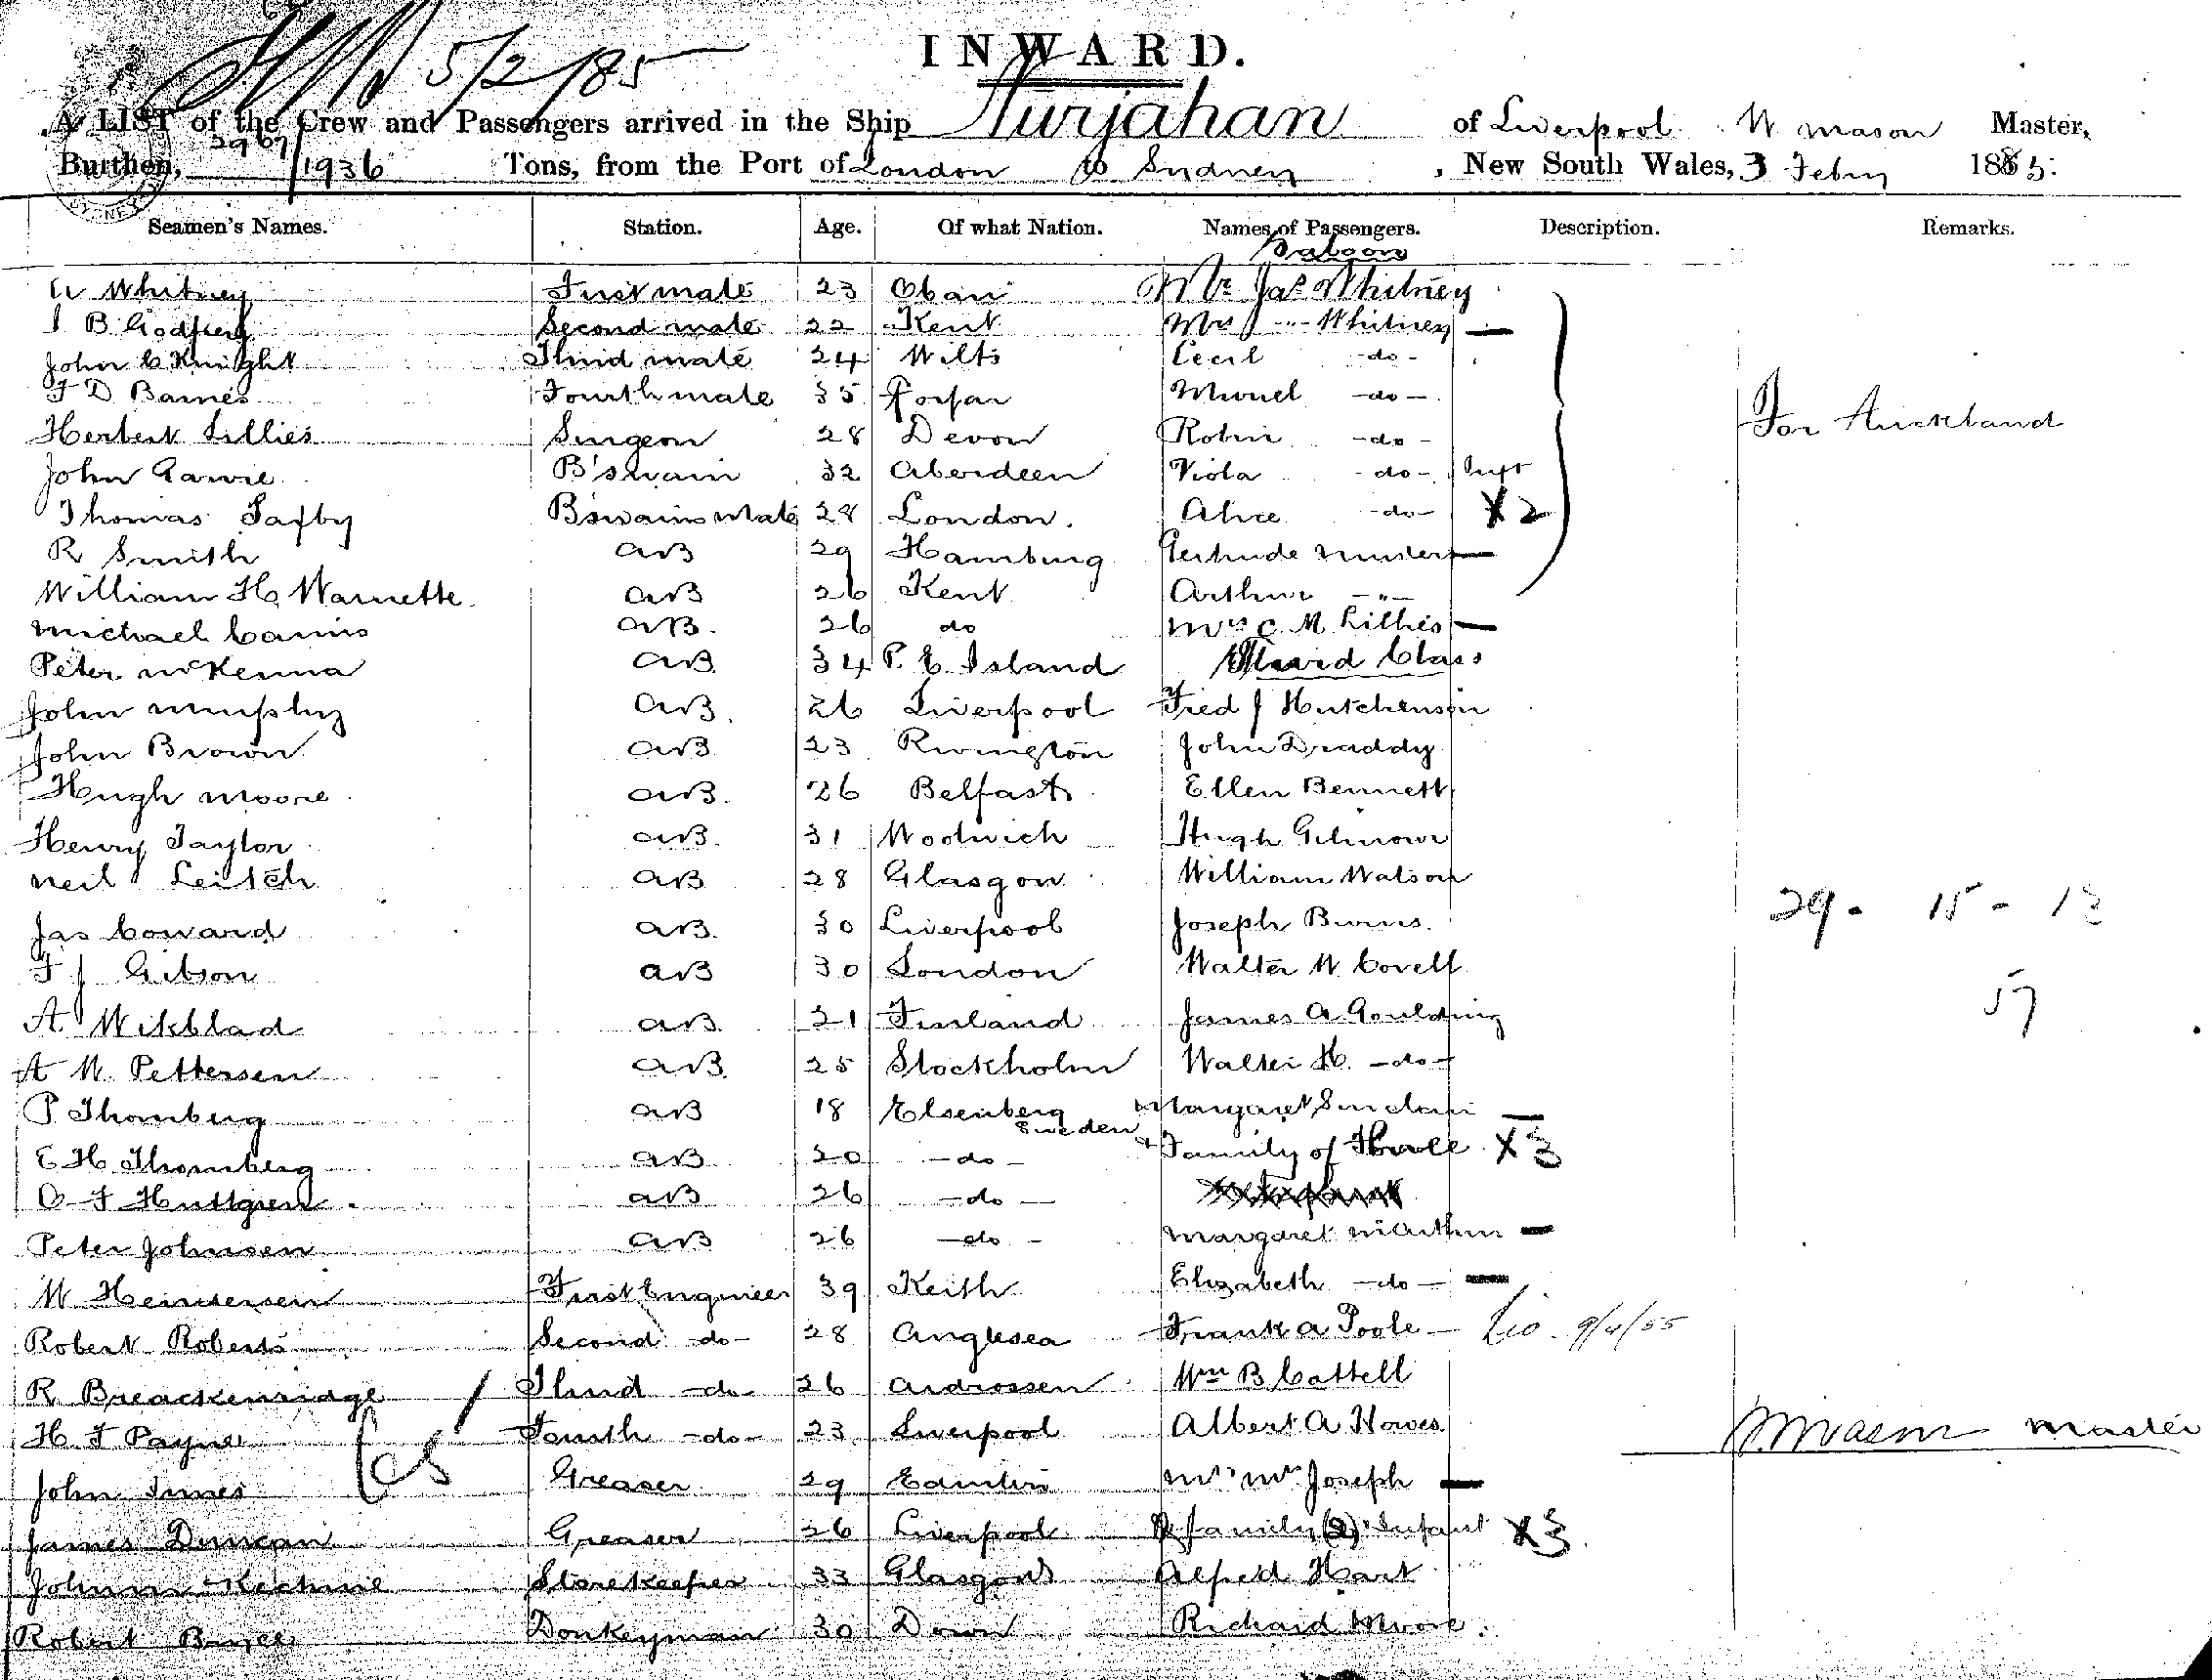 5/2/85
INWARD.
A LIST of the Crew and Passengers arrived in the Ship Nurjahan of Liverpool W Mason Master,
Burthen, 2967/1936 Tons, from the Port of London to Sydney, New South Wales, 3 Febry 1885.
Seamen's Names. Station. Age. Of what Nation. Names of Passengers. Description. Remarks.
Saloon
W Whitney First mate 23 Oban Mr Jas Whitney
J B Godfrey Second mate 22 Kent Mrs J -"- Whitney —
John C Knight Third mate 24 Wilts Cecil -do-
F D Barnes Fourth mate 35 Forfar Muriel -do- For Auckland
Herbert Lillies Surgeon 28 Devon Robin -do-
John Gawie B'swain 32 Aberdeen Viola -do- Inft
Thomas Saxby B'swains Mate 28 London. Alice -do- X2
R Smith AB 29 Hamburg Gertrude —
William H Warnette AB 26 Kent Arthur -"-
Michael Cairns AB. 26 do Mrs C. M. Lillies —
Peter McKenna AB 34 P. E. Island Third Class
John Murphy AB. 26 Liverpool Fred J Hutchenson
John Brown AB 23 Rivington John Draddy
Hugh Moore AB. 26 Belfast Ellen Bennett
Henry Taylor AB. 31 Woolwich Hugh Gilmour
Neil Leitch AB 28 Glasgow William Watson
Jas Coward AB. 30 Liverpool Joseph Burns. 29 - 15 - 13
F J Gibson AB 30 London Walter W Covell
57
A Wikblad AB 21 Finland James A Goulding
A W. Pettersen AB 25 Stockholm Walter H. -do-
P Thomberg AB 18 Elsenberg Sweden Margaret Sinclair —
E H Thomberg AB 20 -do- + Family of Three X3
O F Huttgren AB 26 -do-
Peter Johnsen AB 26 -do- Margaret McArthur —
W Hendersen First Engineer 39 Keith Elizabeth -do- —
Robert Roberts Second -do- 28 Anglesea Frank A Poole —
R Breackenridge Third -do- 26 Ardrossen Wm B Cattell
H F Payne Fourth -do- 23 Liverpool Albert A Howes
W Mason Master
John Innes Greaser 29 Edinbro Mrs Joseph —
James Duncan Greaser 26 Liverpool & family (2) & Infant X3
John Storekeeper 33 Glasgow Alfred Hart
Robert Bryce Donkeyman 30 Down Richard Moore.